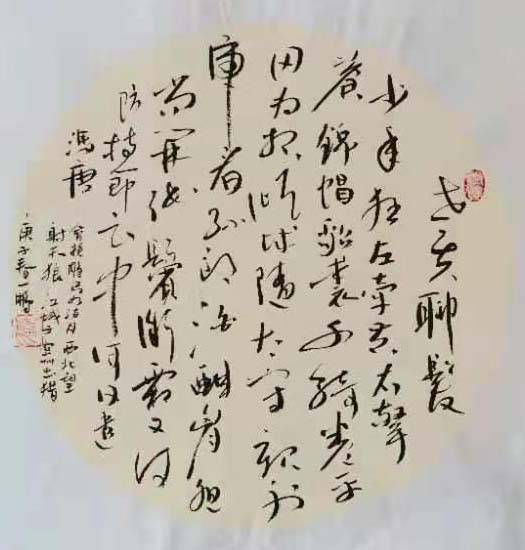 老夫聊髮
少年狂左牽黃右擎
蒼錦帽貂裘千騎卷平
岡为报倾城隨太守親射
虎看孫郎酒酣胸胆
尚開張鬢微霜又何
妨持節云中何日遣
馮唐
會挽雕弓如滿月西北望
射天狼 江城子密州出猎
庚子春一鵬